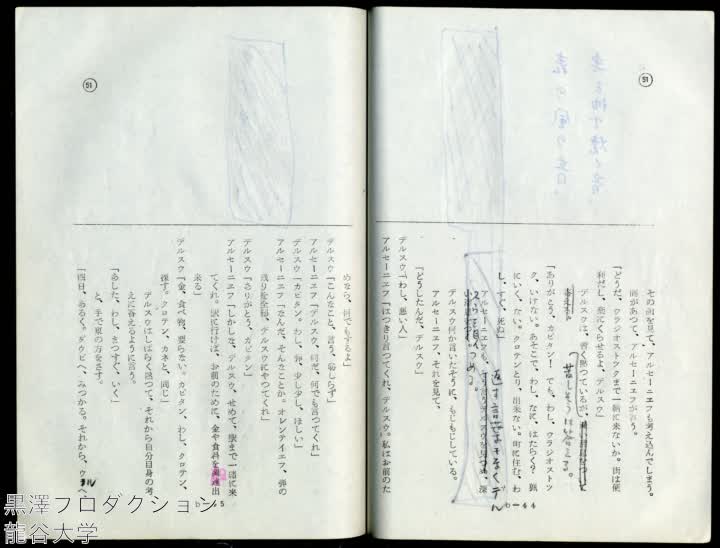 51
その肩を見て、アルセーニエフも考え込んでしまう。
間があつて、アルセーニエフが言う。
「どうだ、ウラジオストツクまで一緒に来ないか。街は便
利だし、楽にくらせるよ、デルスウ」
デルスウは、暫く黙つているが、
苦しそうに答える。
「ありがとう、カピタン！　でも、わし、ウラジオストツ
ク、いけない。あそこで、わし、なに、はたらく？　猟
にいく、だめ。クロテンとり、出来ない。町に住む、わ
し、すぐ、死ぬ」
返す言葉もなくデル
スウを見つめる。
デルスウ何か言いたそうに、もじもじしている。
アルセーニエフ、それを見て、
「どうしたんだ、デルスウ」
デルスウ「わし、悪い人」
アルセーニエフ「はつきり言つてくれ、デルスウ。私はお前のた
b-44
51
めなら、何でもするよ」
デルスウ「こんなこと、言う、恥しらず」
アルセーニエフ「デルスウ、何だ、何でも言つてくれ」
デルスウ「カピタン。わし、弾、少し少し、ほしい」
アルセーニエフ「なんだ、そんなことか。オレンテイエフ、弾の
残りを全部、デルスウにやつてくれ」
デルスウ「ありがとう、カピタン」
アルセーニエフ「しかしな、デルスウ、せめて、駅まで一緒に来
てくれ。駅に行けば、お前のために、金や食料を調達出
来る」
デルスウ「金、食べ物、要らない。カピタン、わし、クロテン、
捜す。クロテン、カネと、同じ」
デルスウはしばらく黙つて、それから自分自身の考
えに答えるように言う。
「あした、わし、まつすぐ、いく」
と、手で東の方をさす。
「四日、あるく。ダウビヘ、みつかる。それから、ウラヘ
b-45
黒澤プロダクション
龍谷大学